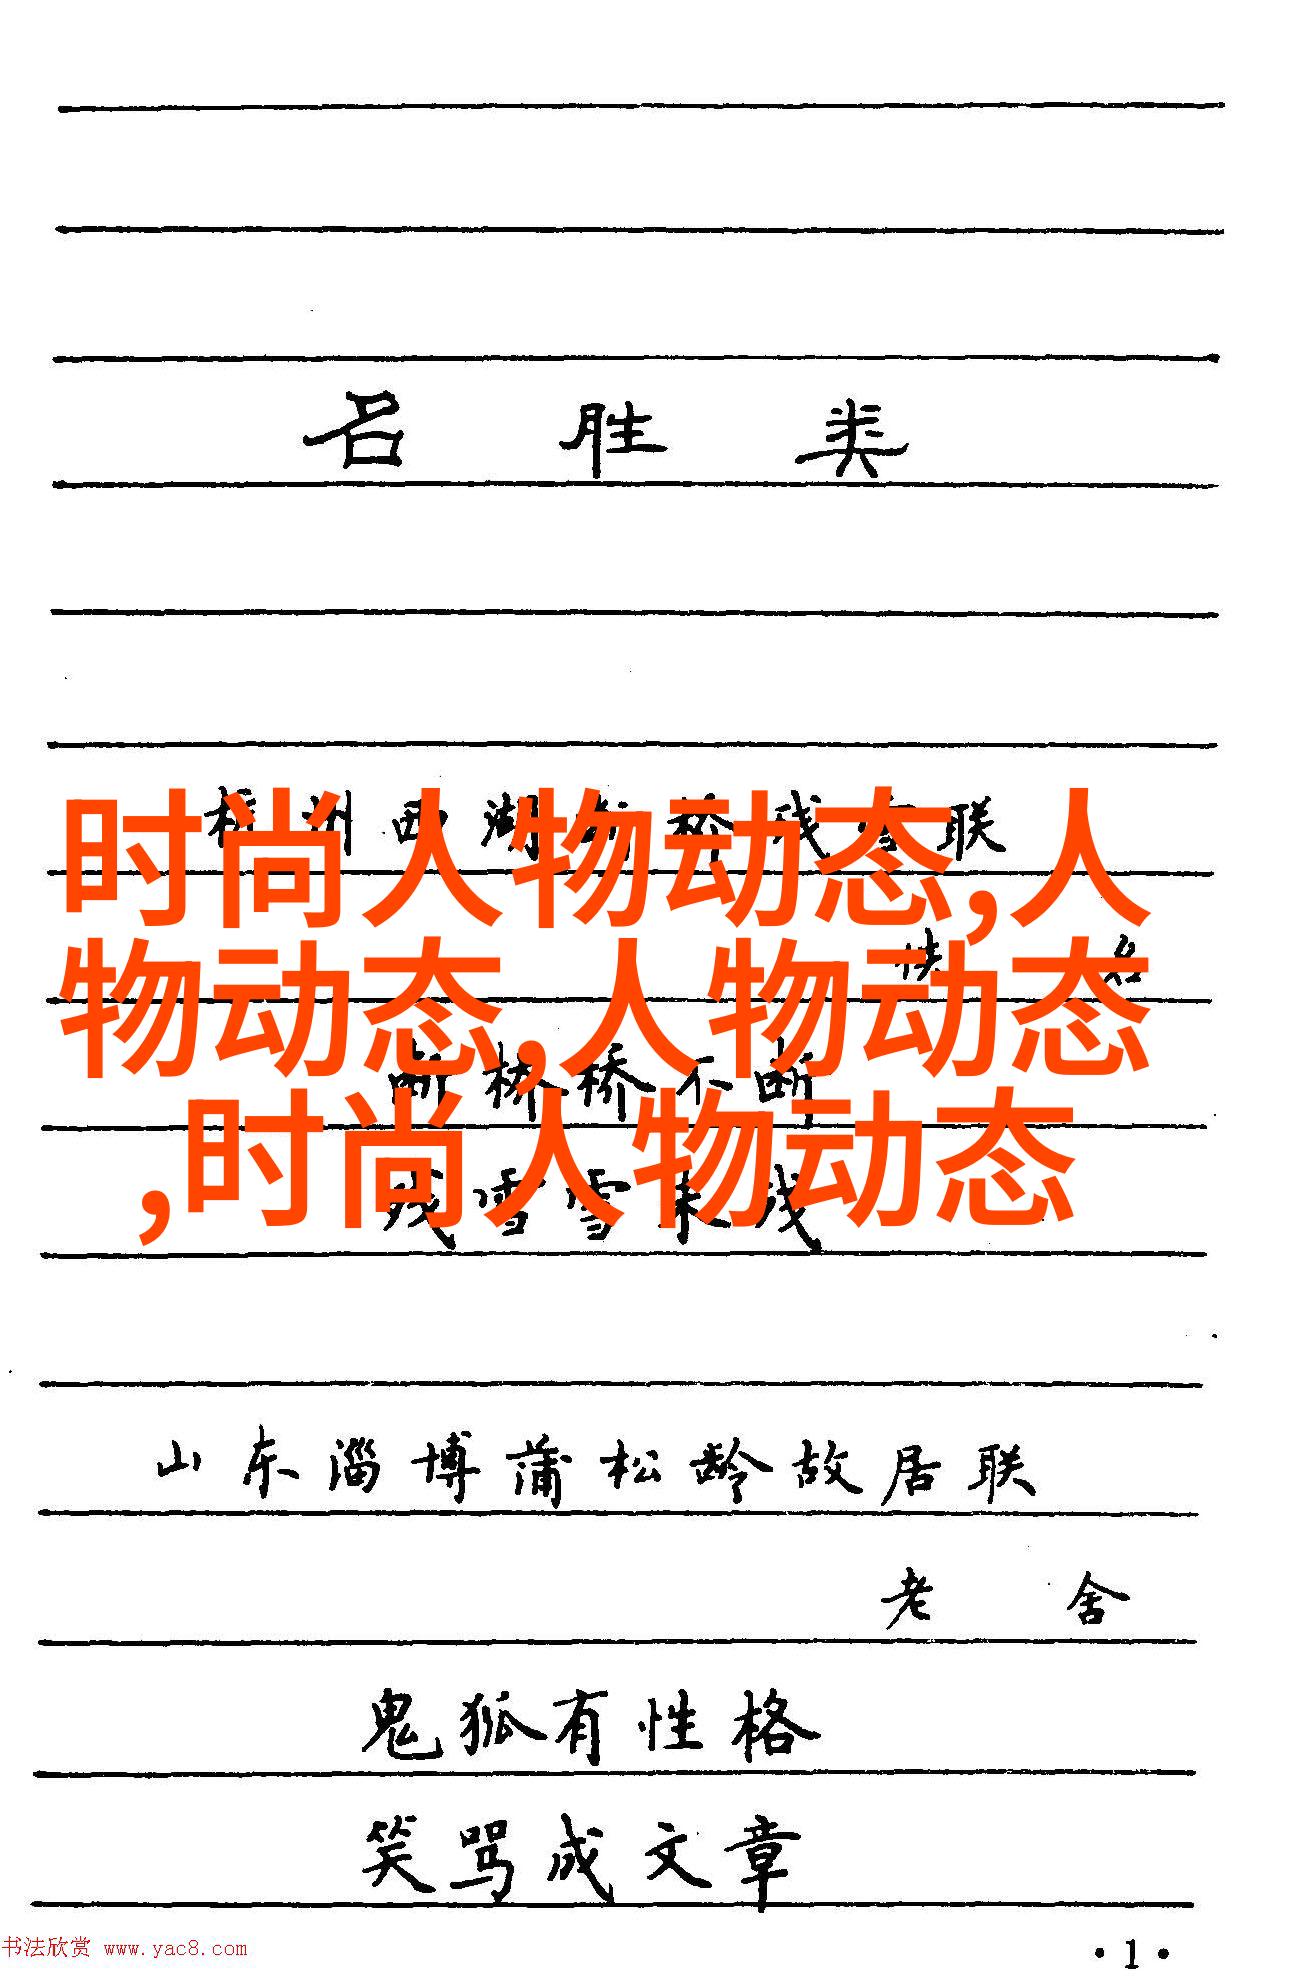 名胜类
杭州西湖断桥残雪联
时尚人物动态,人
佚名
物动态,人物动态
断桥桥不断
,时尚人物动态
残雪雪未残
山东淄博蒲松龄故居联
老舍
鬼狐有性格
笑骂成文章
书法欣赏 www.yac8.com
·1·